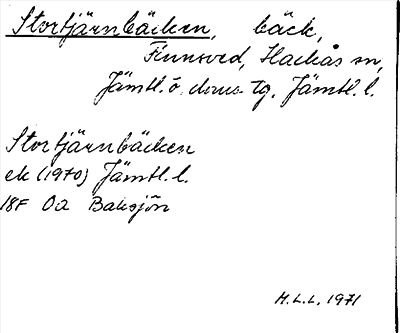 Stortjärnbäcken, bäck,
Finnsved, Hackås sn,
Jämtl. ö. doms. tg. Jämtl. l.
Stortjärnbäcken
ek (1970) Jämtl. l.
18F 0a Baksjön
H.L.L. 1971